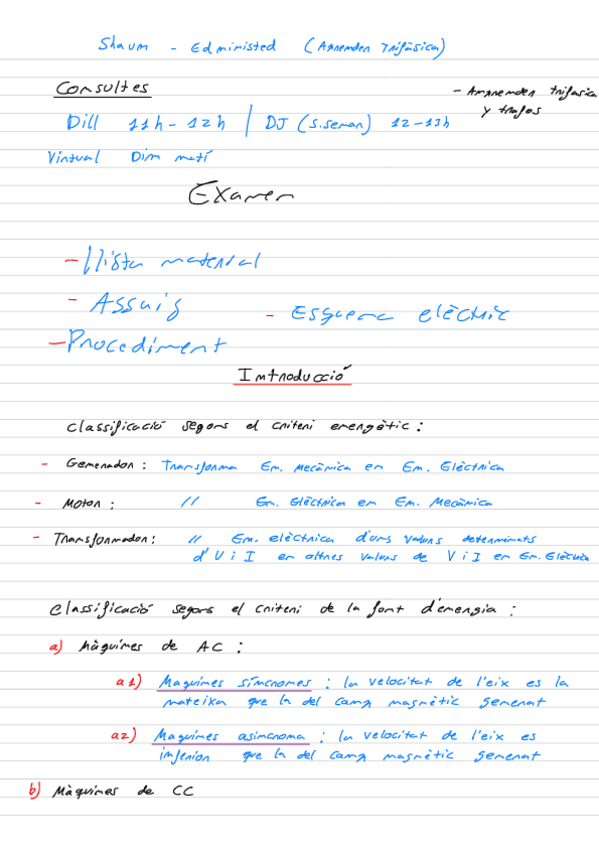 Shaum - Edministed (Aprenden Trifàsica)
Consultes
- Amprenden trifasica y trafos
Dill 11h - 12h | DJ (s.seman) 12-13h
Virtual Dim matí
Examen
- Llista material
- Assaig
- Esquema elèctric
- Procediment
Introducció
Classificació segons el criteri energètic :
- Generador : Transforma En. Mecànica en En. Elèctrica
- Motor : // En. Elèctrica en En. Mecànica
- Transformador : // En. elèctrica d'uns valors determinats
d'U i I en altres valors de V i I en En. Elèctrica
Classificació segons el criteri de la font d'energia :
a) Màquines de AC :
a1) Maquines síncrones : la velocitat de l'eix es la
mateixa que la del camp magnètic generat
a2) Maquines asincrona : la velocitat de l'eix es
inferior que la del camp magnètic generat
b) Màquines de CC